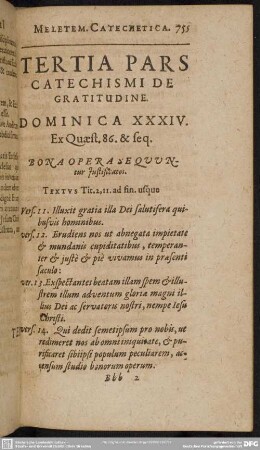 MELETEM. CATECHETICA. 755
TERTIA PARS
CATECHISMI DE
GRATITUDINE.
DOMINICA XXXIV.
Ex Quæst. 86. & seq.
BONA OPERA SEQUUN-
tur Justificatos.
TEXTUS Tit. 2, 11. ad fin. usque
Vers. 11. Illuxit gratia illa Dei salutifera qui-
busvis hominibus.
vers. 12. Erudiens nos ut abnegata impietate
& mundanis cupiditatibus, temperan-
ter & justè & piè vivamus in præsenti
saculo:
ver. 13. Exspectantes beatam illam spem & illu-
strem illum adventum gloriæ magni il-
lius Dei ac servatoris nostri, nempe Iesu
Christi.
vers. 14. Qui dedit semetipsum pro nobis, ut
redimeret nos ab omni iniquitate, & pu-
rificaret sibiipsi populum peculiarem, ac-
censum studio bonorum operum.
Bbb 2